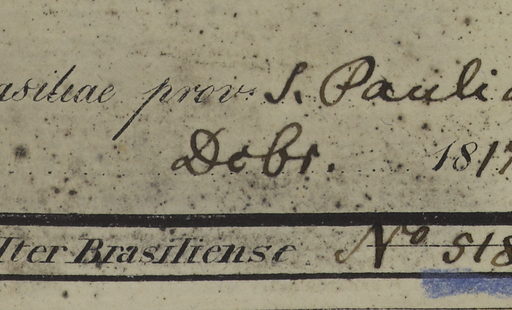 asiliae prov. S. Pauli
Dcbr. 1817
Iter Brasiliense No 518